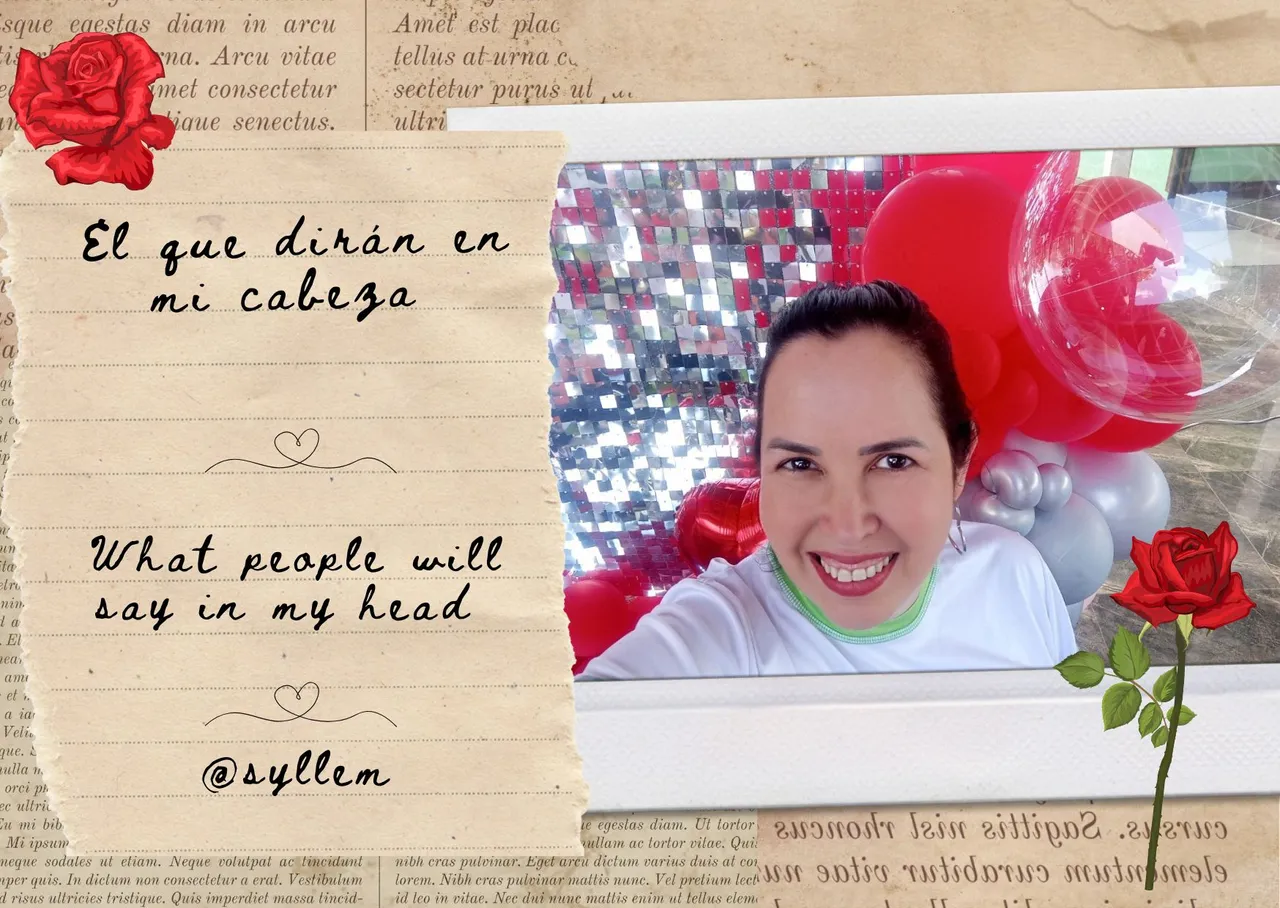 isque egestas diam in arcu
rna. Arcu vitae
amet consectetur
tique senectus.
Amet est plac
tellus at urna
sectetur purus ut
ultri
Él que dirán en
mi cabeza
What people will
say in my head
@syllem
neque sodales ut etiam. Neque volutpat ac tincidunt
mper quis. In dictum non consectetur a erat. Vestibulum
d risus ultricies tristique. Quis imperdiet massa tincid-
ue egestas diam. Ut tortor
ullam ac tortor vitae. Quis
nibh cras pulvinar. Eget arcu dictum varius duis at
lorem. Nibh cras pulvinar mattis nunc. Vel pretium lect
id leo in vitae. Nec dui nunc mattis enim ut tellus elem
cursus. Sagittis nisl rhoncus
elementum curabitur vitae nu